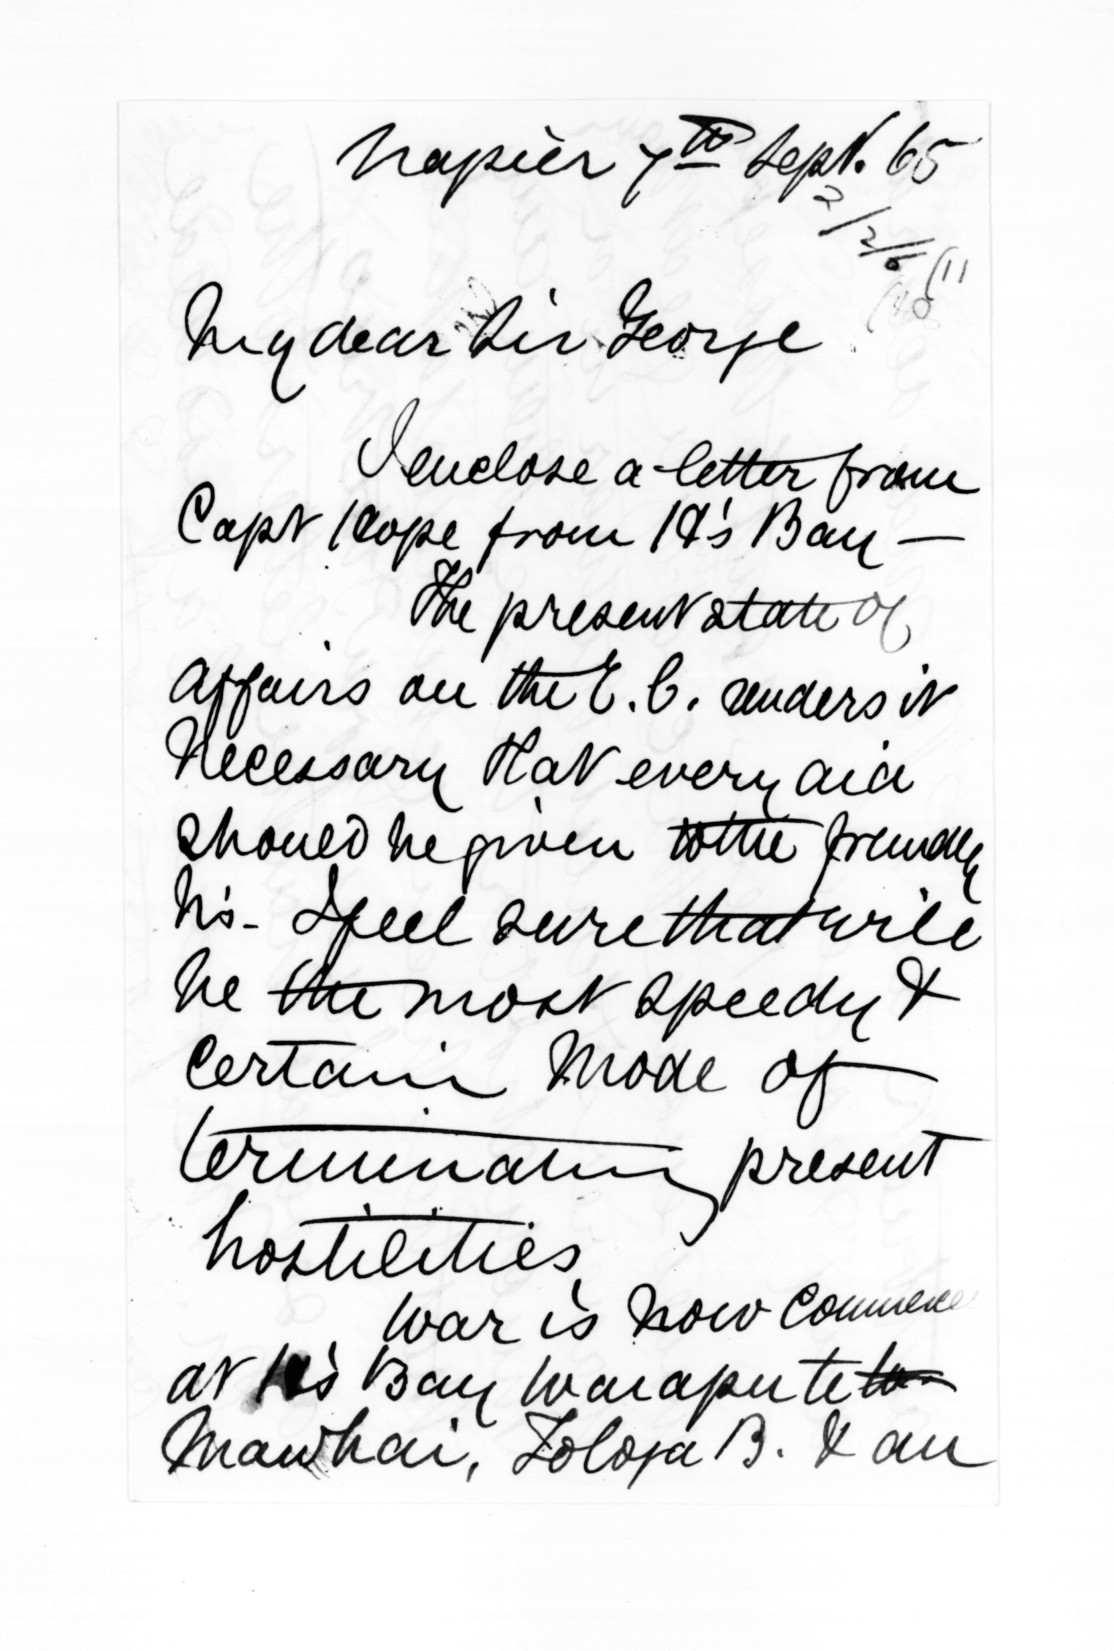 Napier 7th Sept. 65
2/2/6
My dear Sir George
I enclose a letter from
Capt Hope from H's Bay —
The present state of
affairs on the E.C. renders it
necessary that every aid
should be given to the friendly
N's - I feel sure that will
be the most speedy &
certain mode of
terminating present
hostilities,
War is now commence
at H's Bay Waiapu
Mawhai, Tologa B. & an